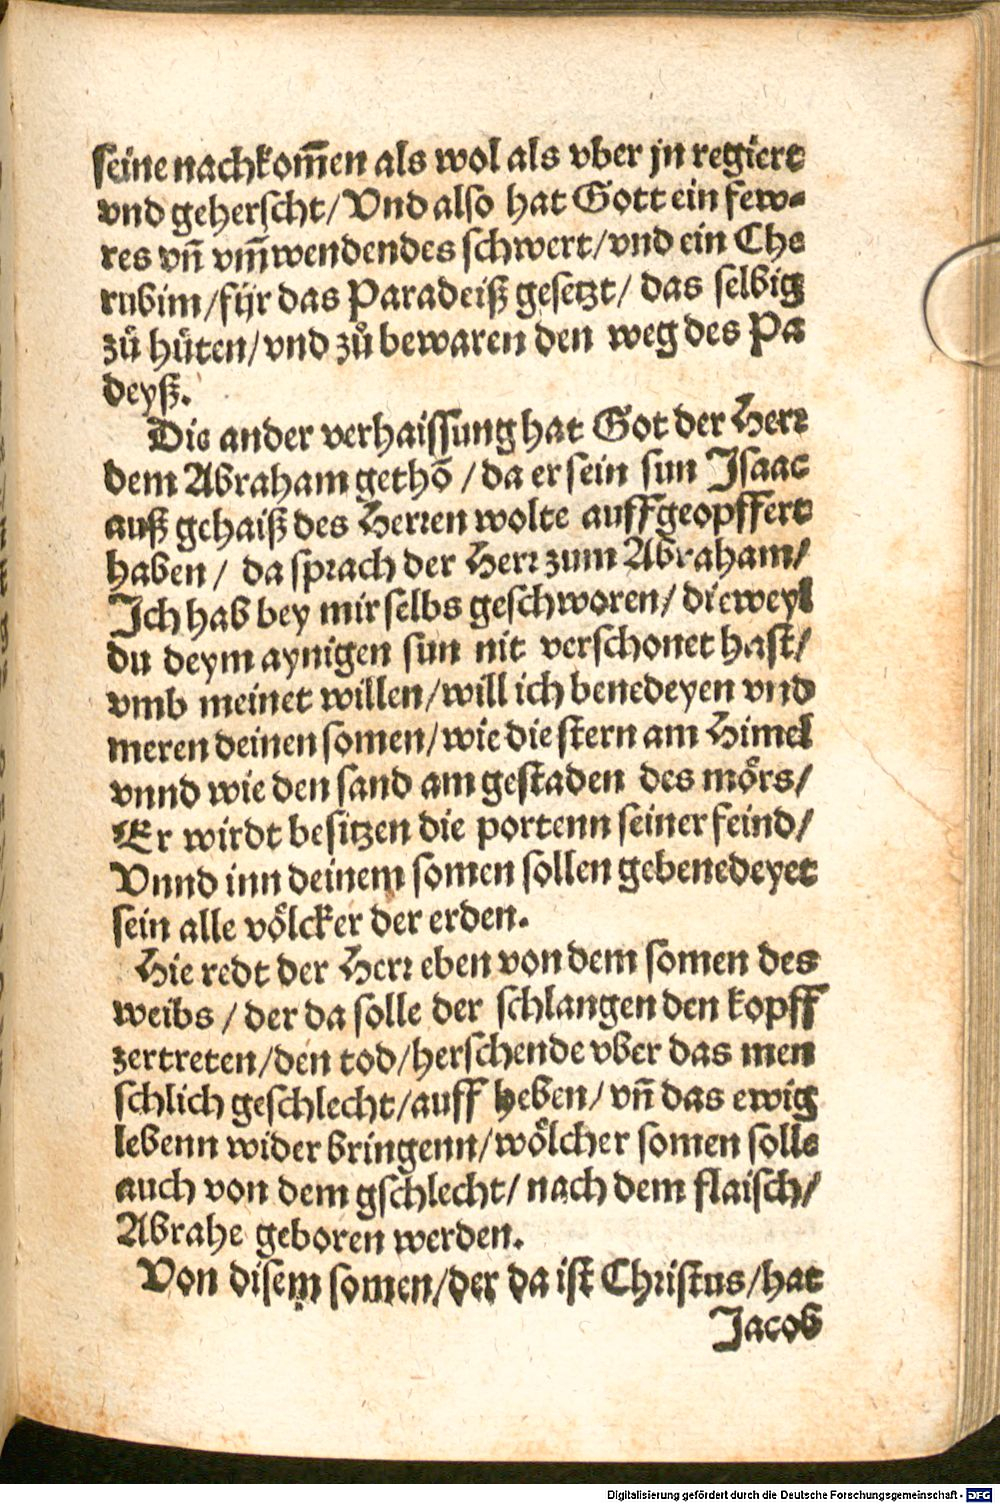 seine nachkom̃en als wol als vber jn regiert
vnd geherscht/ Vnd also hat Gott ein few⸗
res vñ vm̃wendendes schwert/ vnd ein Che
rubim/ fyͤr das Paradeiß gesetzt/ das selbig
zů huͤten/ vnd zů bewaren den weg des Pa
deyß.
Die ander verhaissung hat Got der Herr
dem Abraham gethõ / da er sein sun Isaac
auß gehaiß des Herren wolte auffgeopffert
haben / da sprach der Herr zum Abraham/
Ich hab bey mir selbs geschworen/ dieweyl
du deym aynigen sun nit verschonet hast/
vmb meinet willen/ will ich benedeyen vnd
meren deinen somen/ wie die stern am Himel
vnnd wie den sand am gestaden des moͤrs/
Er wirdt besitzen die portenn seiner feind/
Vnnd inn deinem somen sollen gebenedeyet
sein alle voͤlcker der erden.
Hie redt der Herr eben von dem somen des
weibs / der da solle der schlangen den kopff
zertreten/ den tod/ herschende vber das men
schlich geschlecht/ auff heben/ vñ das ewig
lebenn wider bringenn/ woͤlcher somen solle
auch von dem gschlecht/ nach dem flaisch/
Abrahe geboren werden.
Von disem somen/ der da ist Christus/ hat
Jacob
Digitalisierung gefördert durch die Deutsche Forschungsgemeinschaft - DFG